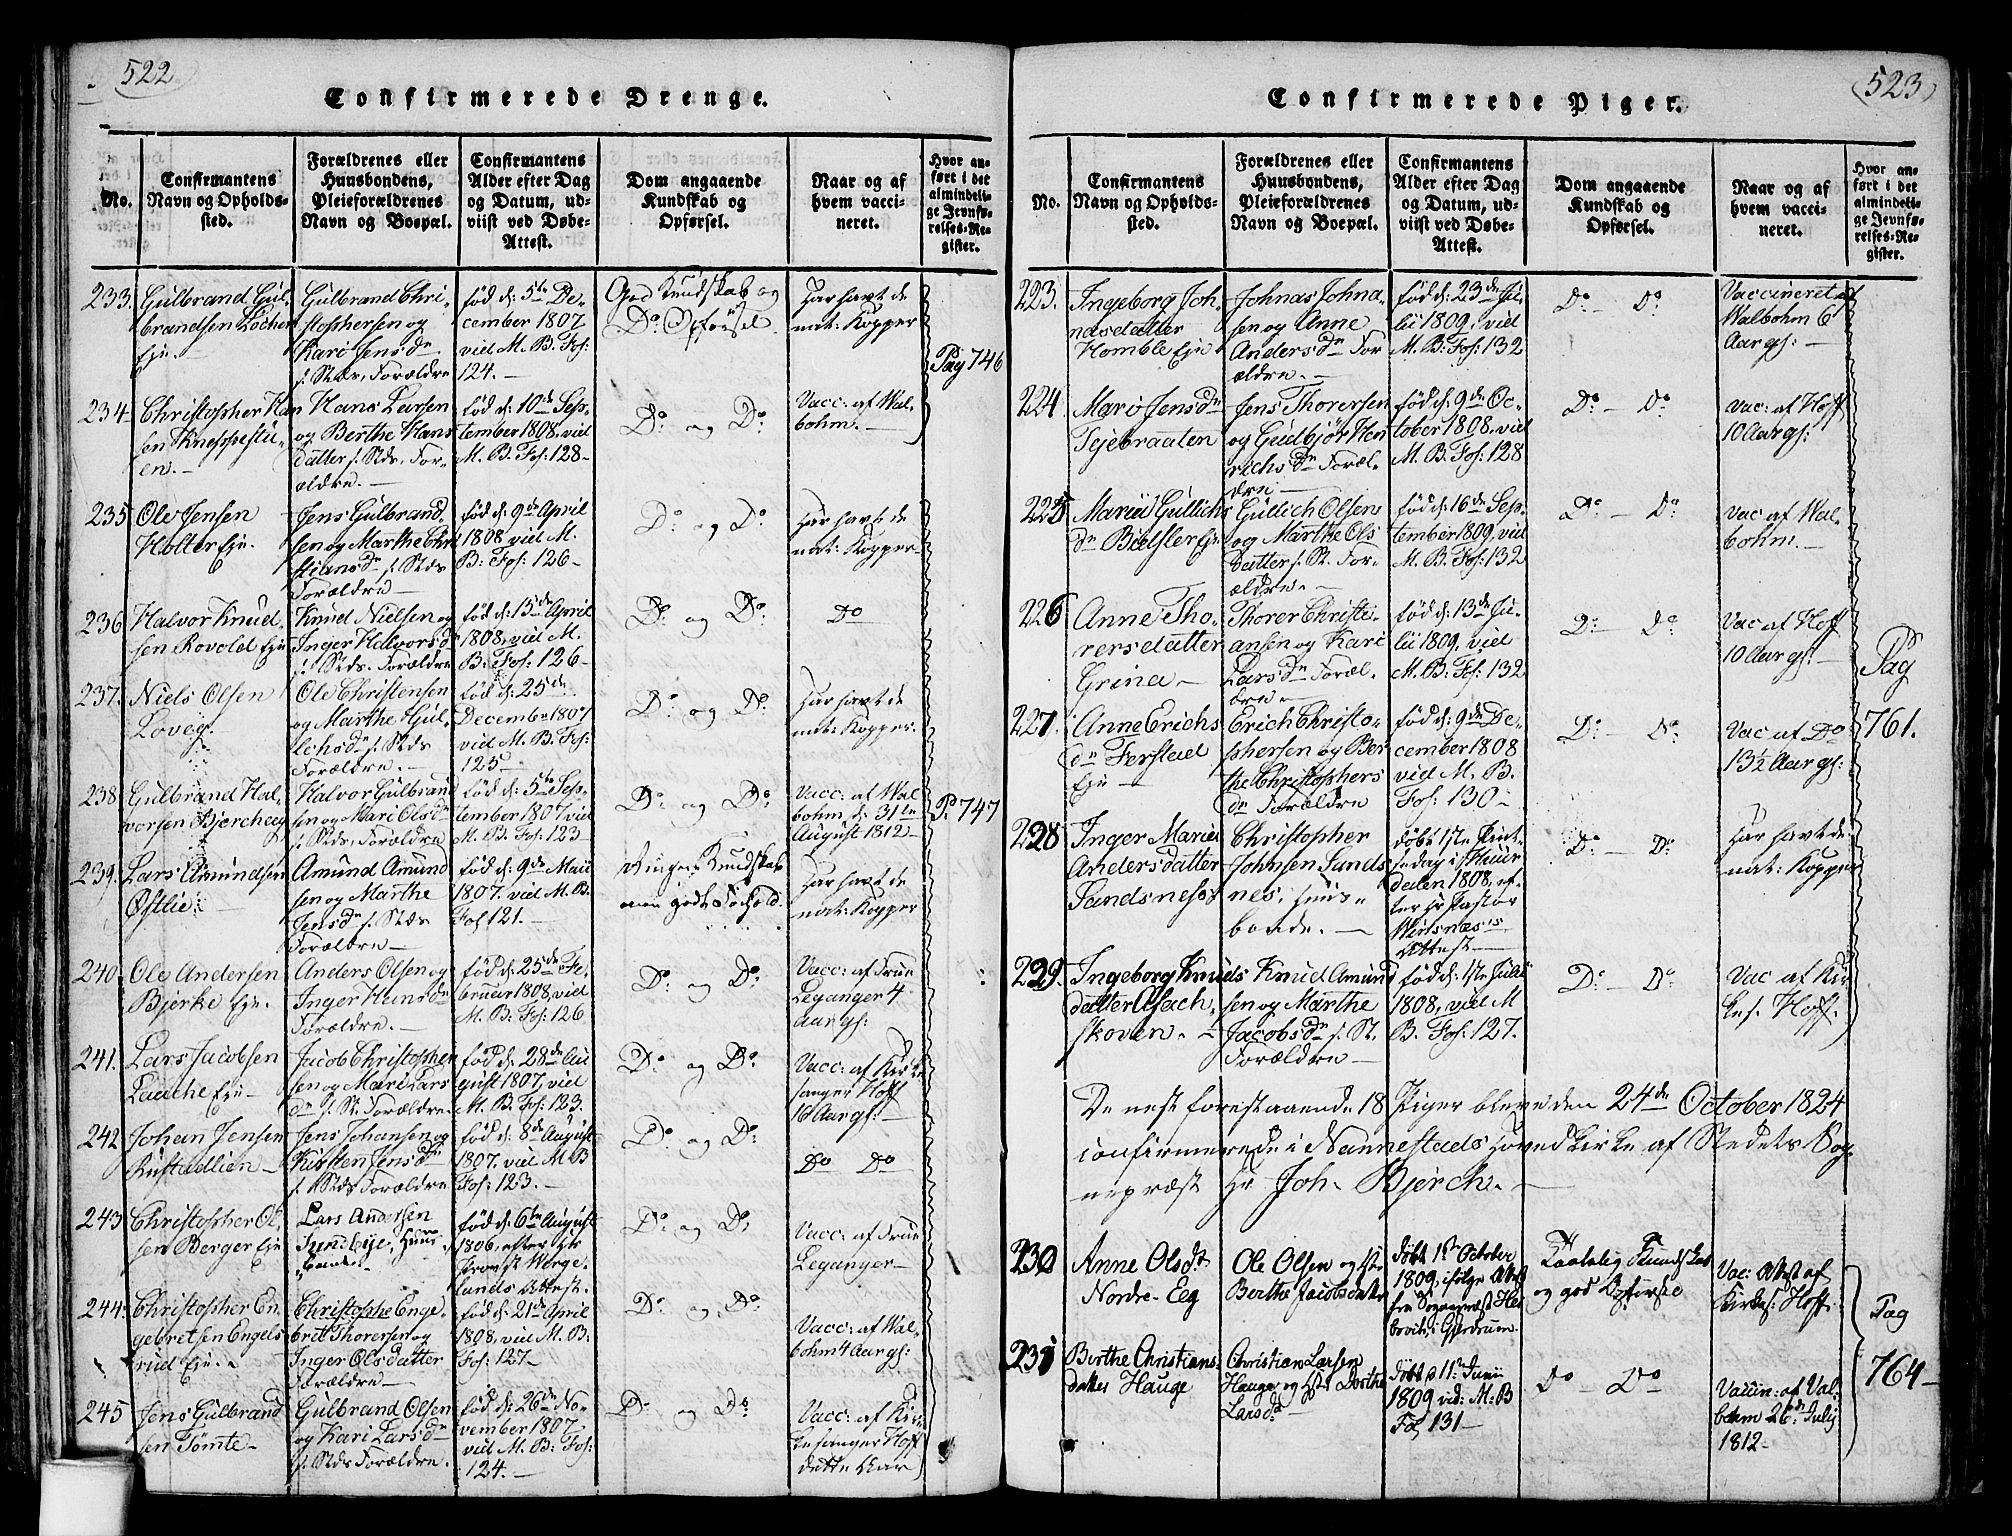 522
Confirmerede Drenge.
No.
Confirmantens
Navn og Opholds-
sted.
Forældrenes eller
Huusbondens,
Pleieforældrenes
Navn og Boepæl.
Confirmantens
Alder efter Dag
og Datum, ud-
viist ved Døbe-
Attest.
Dom angaaende
Kundskab og
Opførsel.
Naar og af
hvem vacci-
neret.
Hvor an-
ført i det
almindeli-
ge Jevnfø-
relses-Re-
gister.
233.
Gulbrand Gul-
brandsen Locher
Eje.
Gulbrand Chri-
stophersen og
Kari Jensdr
s. Stds, Forældre
fød d: 5te De-
cember 1807
vid M. B. Fol:
124.
God Kundskab og
Do Opførsel.
Har havt de
nat: Kopper
Pag 746
234
Christopher Han
sen Kneppestu-
en.
Hans Larsen
og Berthe Hans
datter s. Stds, For-
ældre.
fød d: 10de Sep-
tember 1808, vid
M. B. Fol: 128
Do og Do
Vacc: af Wal-
bohm.
235
Ole Jensen
Holter Eje.
Jens Gulbrand-
sen og Marthe Chri
stiansdr s. Stds
Forældre
fød d: 9de April
1808 vid M.
B. Fol: 126
Do og Do
Har havt de
nat: Kopper
236
Halvor Knud-
sen Rovold Eje
Knud Nielsen og
Inger Halvorsdr
s. Stds. Forældre
fød d: 15de April
1808, vid M.
B: Fol: 126
Do og Do
Do
237.
Niels Olsen
Løveg.
Ole Christensen
og Marthe Gul-
lichsdr s. Stds
Forældre.
fød d: 25de
December 1807
vid M. B. Fol:
125
Do og Do
Har havt de
nat: Kopper
238
Gulbrand Hal-
vorsen Bjerche
Halvor Gulbrand
sen og Mari Olsdr
s. Stds, Forældre
fød d: 5te Sep-
tember 1807 vid
M. B. Fol: 123
Do og Do
Vacc: af Wal
bohm d: 31te
August 1812
P. 747
239.
Lars Amundsen
Østlie
Amund Amund
sen og Marthe
Jensdr s. Stds
Forældre
fød d: 9de Maii
1807. vid M. B.
Fol 121.
Ringe Kundskab
men godt Forhold.
Har havt de
nat: Kopper
240
Ole Andersen
Bjerke Eje.
Anders Olsen og
Inger Hansdr
Forældre.
fød d: 25de Fe-
bruar 1808, vid
M. B: Fol: 126
Do og Do
Vacc: af Frue
Leganger 4
Aar gs:
241.
Lars Jacobsen
Laache Eje
Jacob Christopher
sen og Mari Lars
dr s. St. Forældre
fød d: 28de Au
gust 1807, vid
M. B. Fol: 123.
Do og Do
Vacc: af Kirke
sanger Hoff
10 Aar gs:
242
Johan Jensen
Rustadlien
Jens Johansen og
Kirsten Jensdr
s. Stds Forældre
fød d: 8de August
1807. vid M B
Fol: 123.
Do og Do
Do Do
243
Christopher Ol-
sen Berger Eje
Lars Andersen
Sundbye, Huus-
bonde.
fød d: 6te August
1806, efter Hr
Provst Werge-
lands Attest.
Do og Do
Vacc: af Frue
Leganger
244
Christopher En-
gebretsen Engels
rud Eje.
Christophe Enge-
bret Thorersen og
Inger Olsdatter
Forældre
fød d: 21de April
1808, vid M. B:
Fol: 127
Do og Do
Vacc: af Wal-
bohm 4 Aar gs:
245
Jens Gulbrand
sen Tømte
Gulbrand Olsen
og Kari Larsdr
s. Stds Forældre.
fød d: 26de No-
vember 1807
vid M. B. Fol:
124.
Do og Do
Vacc: af Kir-
kesanger Hoff
dette Aar
523
Confirmerede Piger.
No.
Confirmantens
Navn og Opholds-
sted.
Forældrenes eller
Huusbondens,
Pleieforældrenes
Navn og Boepæl.
Confirmantens
Alder efter Dag
og Datum, ud-
viist ved Døbe-
Attest.
Dom angaaende
Kundskab og
Opførsel.
Naar og af
hvem vacci-
neret.
Hvor an-
ført i det
almindeli-
ge Jevnfø-
relses-Re-
gister.
223.
Ingeborg Joh-
nasdatter
Homble Eje
Johnas Johna-
sen og Anne
Andersdr For
ældre.
fød d: 23de Ju-
lii 1809, vid
M. B: Fol: 132
Do - Do
Vaccineret af
Walbohm 6
Aar gs:
224
Mari Jensdr
Tejebraaten
Jens Thorersen
og Gudbjør Hen
richsdr Foræl-
dre
fød d: 9de Oc-
tober 1808, vid
M. B. Fol: 128
Do - Do
vac: af Hoff
10 Aar gs:
225
Marie Gullichs
dr Bielsler Eje
Gullich Olsen
og Marthe Ols
datter s. St. For-
ældre.
fød d: 16de Sep-
tember 1809, vid
M. B. Fol: 132
Do - Do
vac af Wal-
bohm.
226
Anne Tho-
rersdatter
Grina
Thorer Christi-
ansen og Kari
Larsdr Foræl-
dre
fød d: 13de Ju-
lii 1809, vid
M. B: Fol: 132
Do - Do
Vac af Hoff
10 Aar gs:
Pag
761.
227
Anne Erichs
dr Ferstad
Eje
Erich Christo-
phersen og Ber
the Christophers
dr Forældre
fød d: 9de De-
cember 1808
vid M. B.
Fol: 130
Do - Do
Vac af Do
13½ Aar gs:
228
Inger Marie
Andersdatter
Sandsness
Christopher
Johnsen Sands
nes, Huus-
bonde.
døbt 1ste Pint-
sedag i Huur
dalen 1808, ef-
ter Hr Pastor
Wirsnæs's
Attest
Do - Do
Har havt de
nat: Kopper
229.
Ingeborg Knuds
datter Asach-
skoven.
Knud Amund
sen og Marthe
Jacobsdr s. St.
Forældre
fød d: 1ste Julii
1808, vid M
B. Fol: 127.
Do - Do
Vac af Kir
kes. Hoff.
De nest forestaaende 18 Piger bleve den 24de October 1824
confirmerede i Nannestads Hovedkirke af Stedets Sog-
nepræst Hr Joh. Bjerch.
230
Anne Olsdt
Nordre-Eeg
Ole Olsen og
Berthe Jacobsdatter
døbt 1ste October
1809, ifølge Attest
fra Sognepræst
i Gjerdrum.
Taalelig Kundskab
og god Opførsel
Vac: Attest af
Kirkes: Hoff
Pag
764
231
Berthe Christians
datter Hauge
Christian Larsen
Hauge og Dorthe
Larsdr
døbt 11te Junii
1809 vid: M: B
Fol 131
Do - Do
Vaccin: af Val-
bohm 26de July
1812